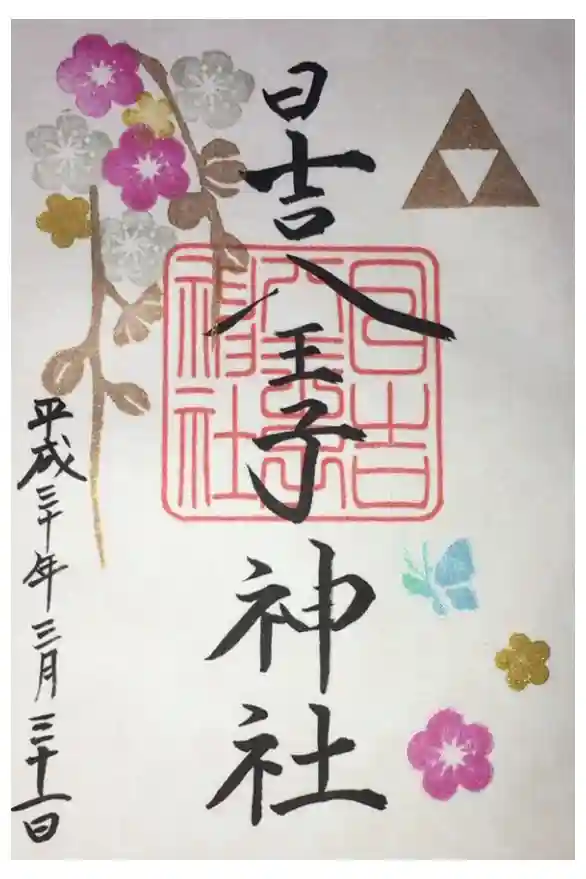 日吉八王子神社
日吉八王子神社
平成三十年三月三十一日